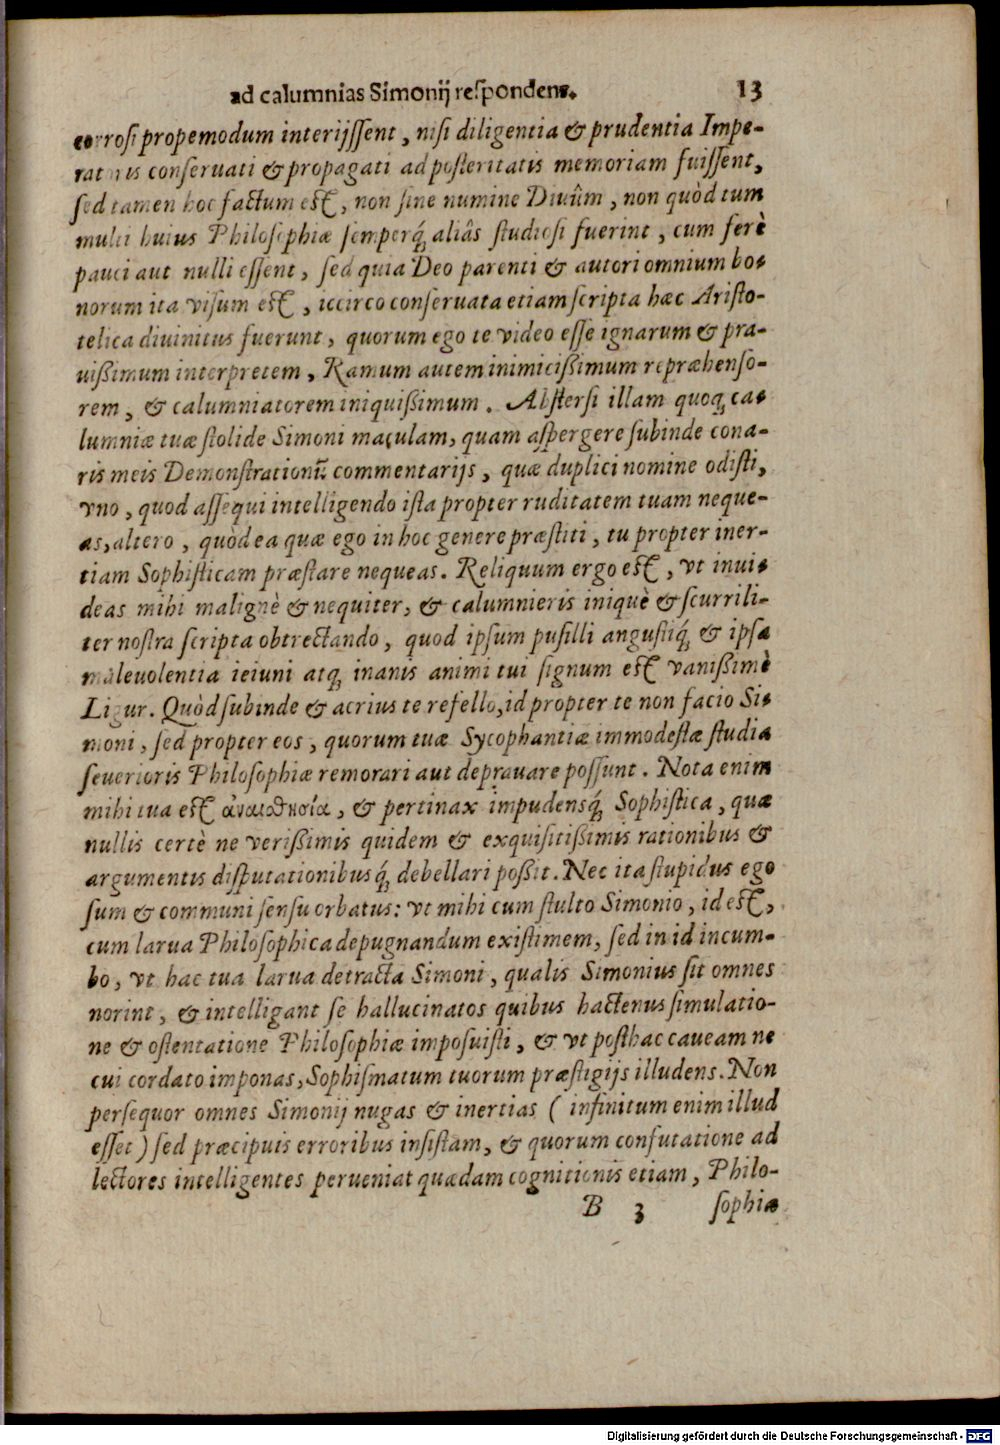 ad calumnias Simonij reſpondens. 13
corroſi propemodum interijſſent, niſi diligentia & prudentia Impe-
ratoris conſeruati & propagati ad poſteritatis memoriam fuiſſent,
ſed tamen hoc factum eſt, non ſine numine Diuûm, non quòd tum
multi huius Philoſophiæ ſemperq́; aliâs ſtudioſi fuerint, cum ferè
pauci aut nulli eſſent, ſed quia Deo parenti & autori omnium bo-
norum ita viſum eſt, iccirco conſeruata etiam ſcripta hæc Ariſto-
telica diuinitus fuerunt, quorum ego te video eſſe ignarum & pra-
uißimum interpretem, Ramum autem inimicißimum repræhenſo-
rem, & calumniatorem iniquißimum. Abſterſi illam quoq; ca-
lumniæ tuæ ſtolide Simoni maculam, quam aſpergere ſubinde cona-
ris meis Demonſtrationũ commentarijs, quæ duplici nomine odiſti,
vno, quod aſſequi intelligendo iſta propter ruditatem tuam neque-
as, altero, quòd ea quæ ego in hoc genere præſtiti, tu propter iner-
tiam Sophiſticam præſtare nequeas. Reliquum ergo eſt, vt inui-
deas mihi malignè & nequiter, & calumnieris iniquè & ſcurrili-
ter noſtra ſcripta obtrectando, quod ipſum puſilli anguſtiq́; & ipſa
maleuolentia ieiuni atq; inanis animi tui ſignum eſt vanißimè
Ligur. Quòd ſubinde & acrius te refello, id propter te non facio Si-
moni, ſed propter eos, quorum tuæ Sycophantiæ immodeſtæ ſtudia
ſeuerioris Philoſophiæ remorari aut deprauare poſſunt. Nota enim
mihi tua eſt ἀναισθησία, & pertinax impudensq́; Sophiſtica, quæ
nullis certè ne verißimis quidem & exquiſitißimis rationibus &
argumentis diſputationibusq́; debellari poßit. Nec ita ſtupidus ego
ſum & communi ſenſu orbatus: vt mihi cum ſtulto Simonio, id eſt,
cum larua Philoſophica depugnandum exiſtimem, ſed in id incum-
bo, vt hac tua larua detracta Simoni, qualis Simonius ſit omnes
norint, & intelligant ſe hallucinatos quibus hactenus ſimulatio-
ne & oſtentatione Philoſophiæ impoſuiſti, & vt poſthac caueam ne
cui cordato imponas, Sophiſmatum tuorum præſtigijs illudens. Non
perſequor omnes Simonij nugas & inertias ( infinitum enim illud
eſſet ) ſed præcipuis erroribus inſiſtam, & quorum confutatione ad
lectores intelligentes perueniat quædam cognitionis etiam, Philo-
B 3 ſophiæ
Digitalisierung gefördert durch die Deutsche Forschungsgemeinschaft - DFG